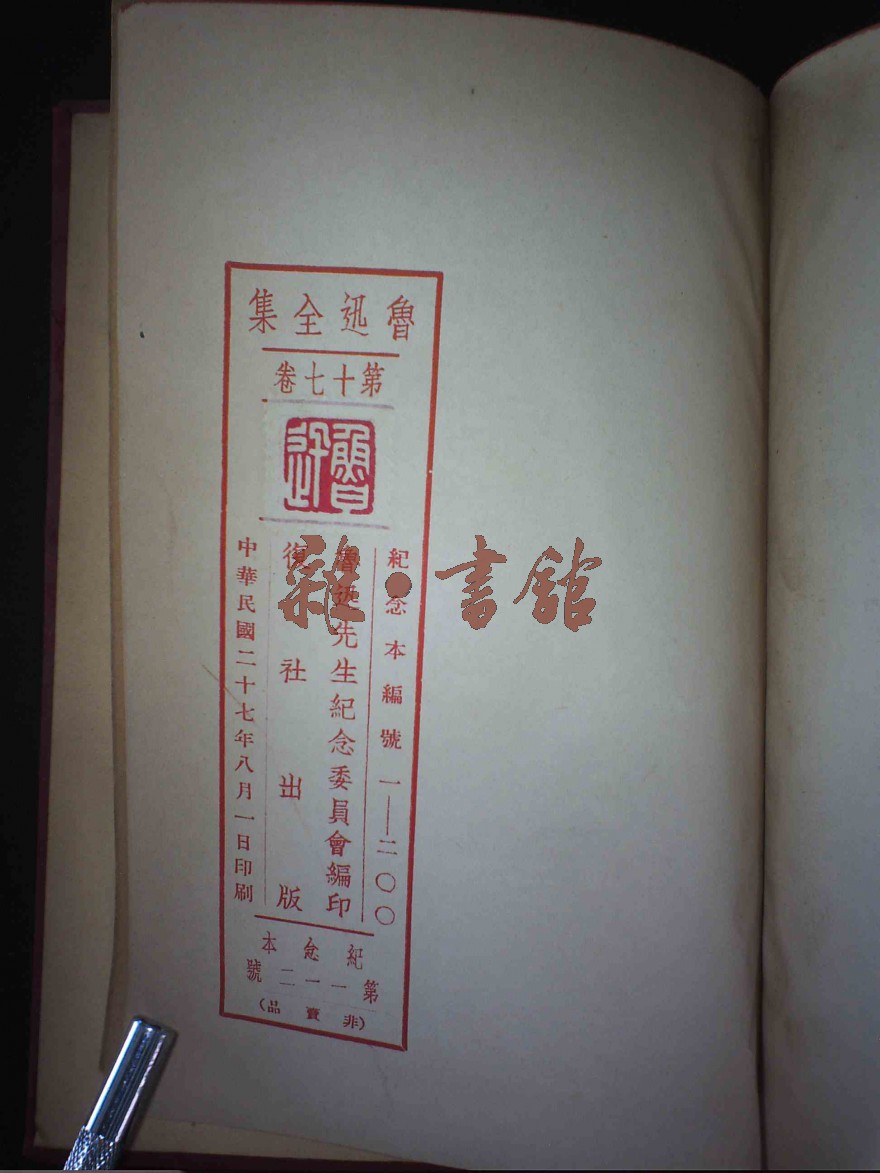 魯迅全集
第十七卷
魯迅
紀念本編號一——二〇〇
魯迅先生紀念委員會編印
復社出版
中華民國二十七年八月一日印刷
紀念本
第一一二號
(非賣品)
雜·書館